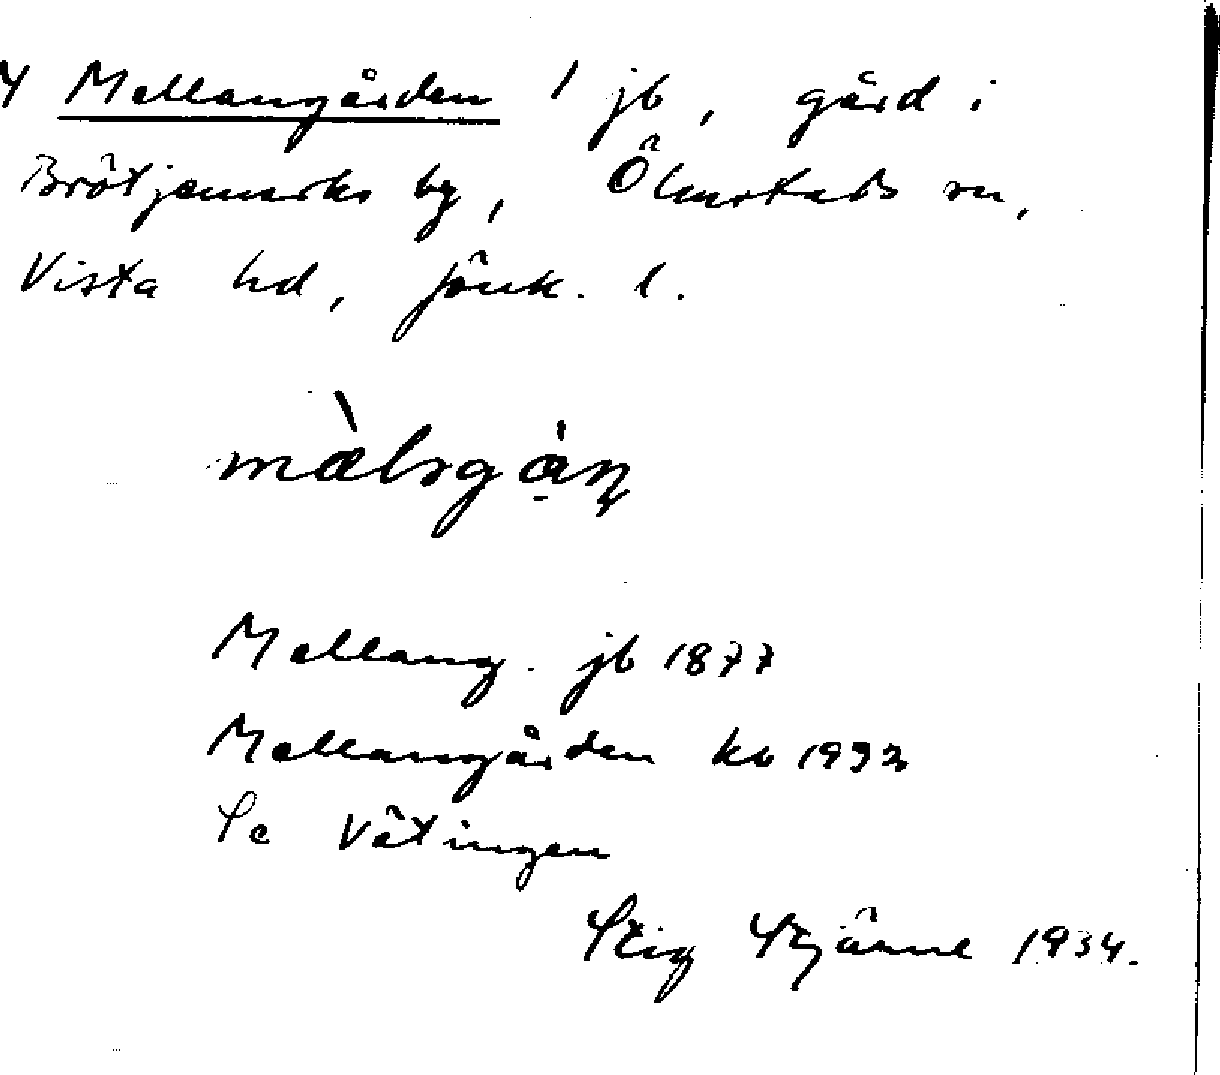 Mellangården 1 jb, gård i
Brötjemarks by, Ölmstads sn,
Vista hd, Jönk. l.
Mellang. jb 1877
Mellangården ko 1932
Se Vätingen
Stig Stjärne 1934.